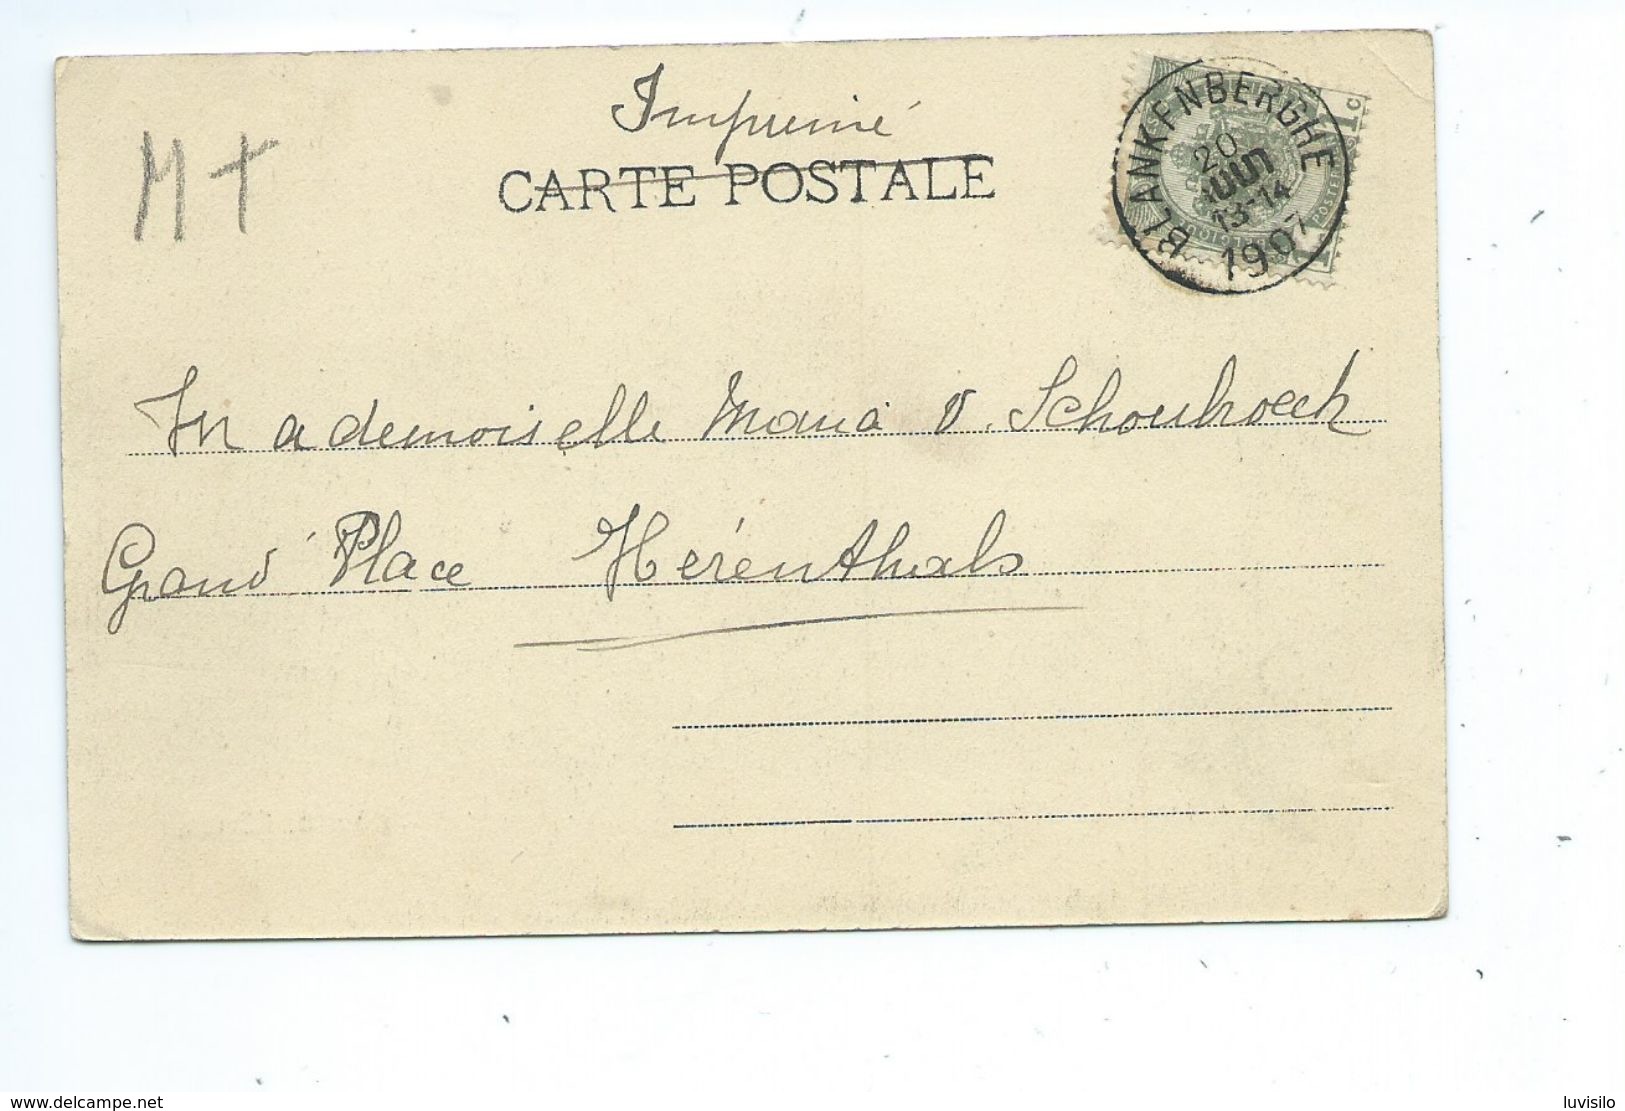 Imprimé
CARTE POSTALE
M +
BLANKENBERGHE
20
AOUT
13-14
1907
1c
Mademoiselle Maria v. Schoubroeck
Grand' Place Hérenthals
www.delcampe.net
luvisilo